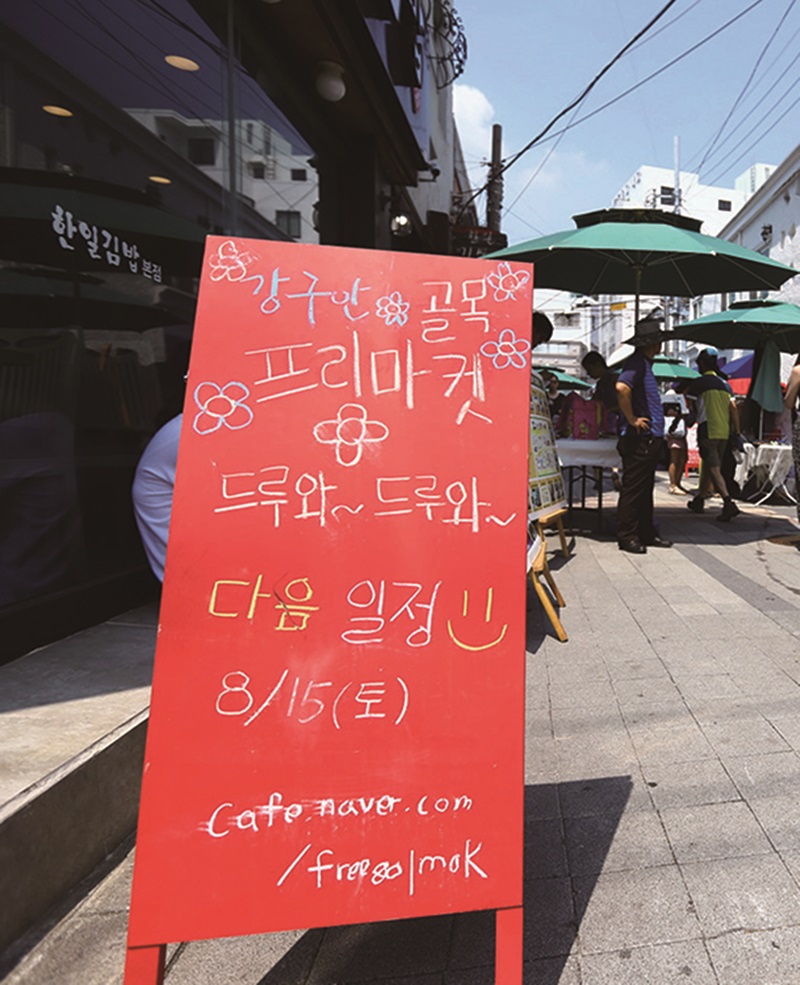 한일김밥 본점
강구안 골목
프리마켓
드루와~ 드루와~
다음 일정
8/15(토)
cafe.naver.com
/freegolmok